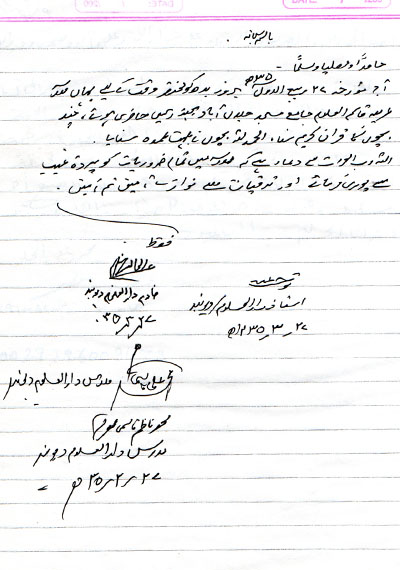 باسمہ سبحانہ
حامداً و مصلیاً و مسلماً
آج مؤرخہ ۲۷ ربیع الاول ۱۴۳۵ھ بروز بدھ کو مختصر وقت کے لیے یہاں مدرسہ
عربیہ قاسم العلوم جامع مسجد جلال آباد میں حاضری ہوئی، چند
بچوں کا قرآن کریم سنا، الحمد للہ بچوں نے بہت عمدہ سنایا۔
اللہ رب العزت سے دعاء ہے کہ مدرسہ میں تمام ضروریات کو پردۂ غیب
سے پوری فرمائے اور ترقیات سے نوازے آمین ثم آمین۔
فقط
خادم دارالعلوم دیوبند
توحید
استاذ دارالعلوم دیوبند
مدرس دارالعلوم دیوبند
محمد ناظم قاسمی
مدرس دارالعلوم دیوبند